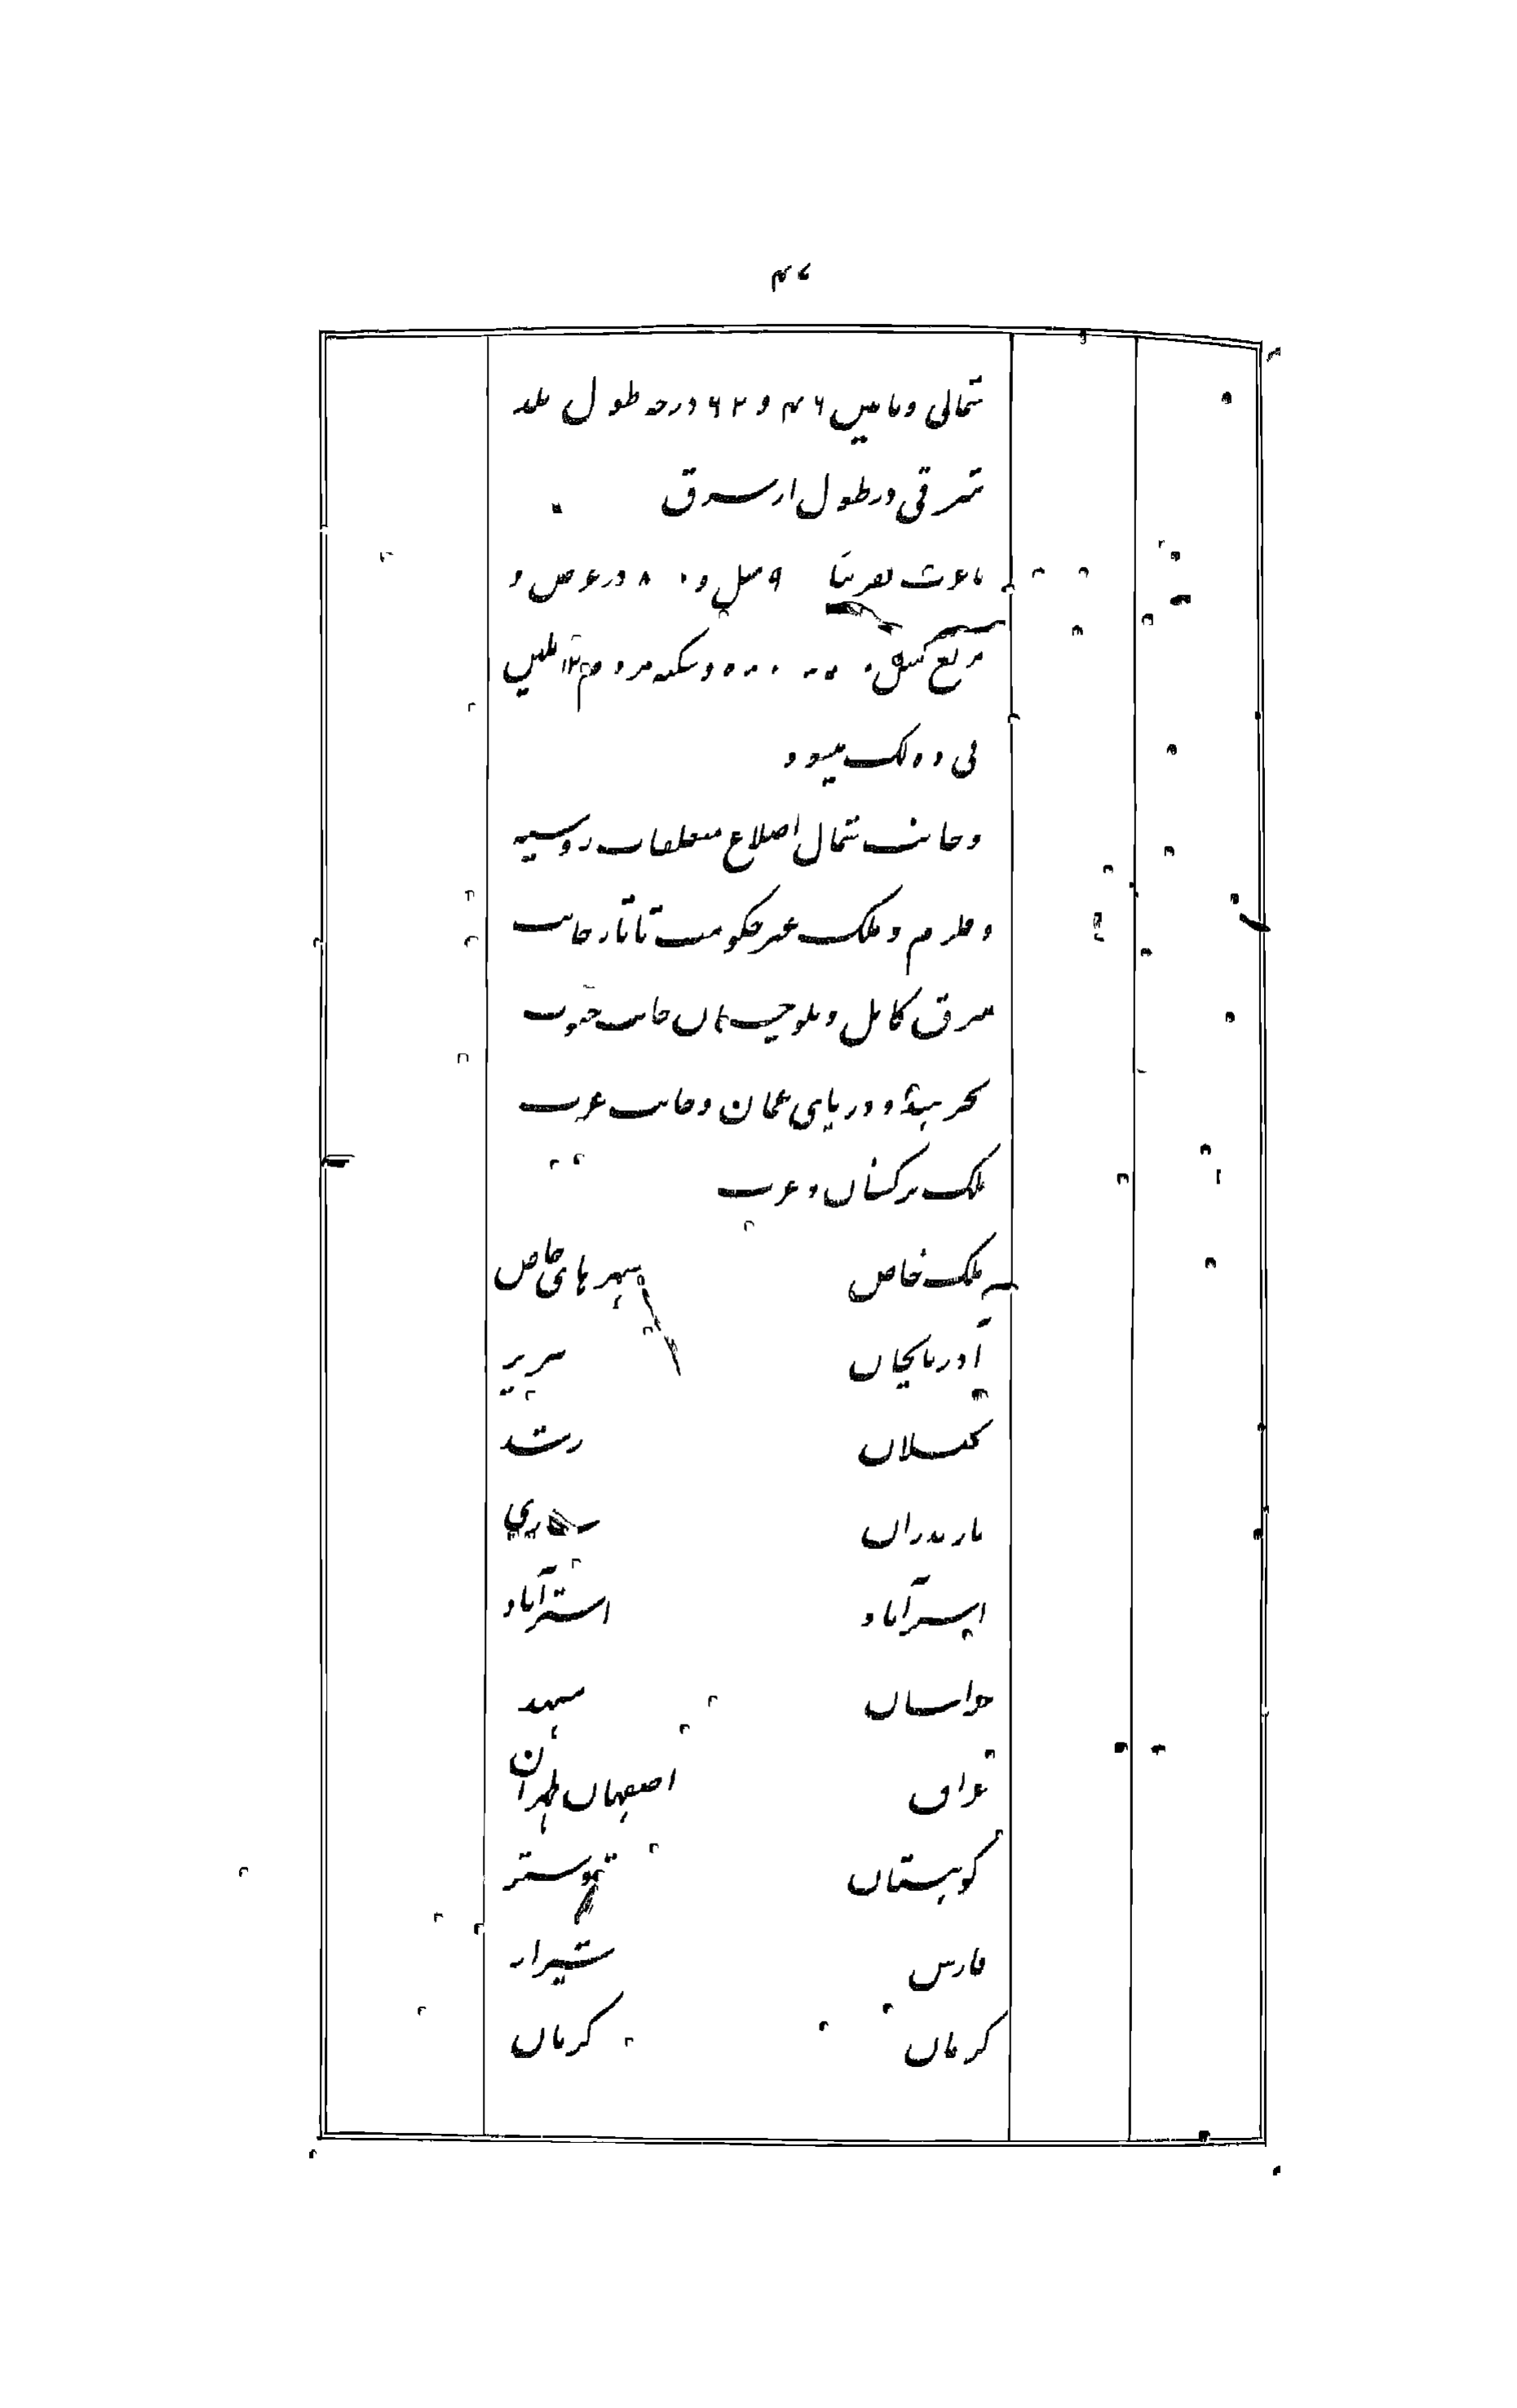 ۴۷
شمالی و مابین ۴۶ و ۶۲ درجه طول بلد
شرقی در طول از شرق
تا غرب تقریباً ۹ میل و ۸۰۰ در عرض و
مربع میل ۵۰۰۰۰۰ و سکنه مردم ۱۲
میشود
و جانب شمال اضلاع متعلقات روسیه
و قلزم و ملک غیر حکومت تاتار جانب
شرق کابل و بلوچستان جانب جنوب
بحر هند و دریای عمان و جانب غرب
ملک ترکستان و عرب
ملک خاص شهرهای خاص
آذربایجان تبریز
گیلان رشت
مازندران ساری
استرآباد استرآباد
خراسان مشهد
عراق اصفهان طهران
کوهستان شوستر
فارس شیراز
کرمان کرمان